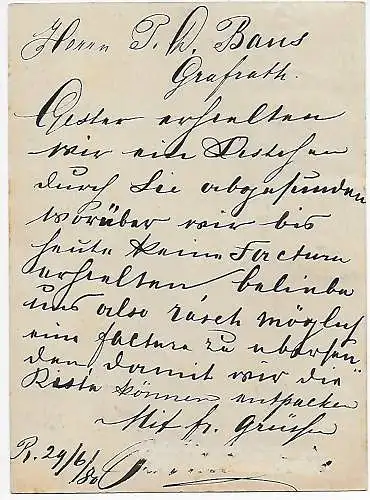 Herrn P. D. Baus
Grafrath.
Gester erhielten
wir ein Kistchen
durch Sie abgesunden
worüber wir bis
heute keine Factura
erhielten beliebe
uns also räsch möglich
eine factura zu übersen
den damit wir die
Kiste können entpacken
Mit fr. Grüssen
R. 29/6/80